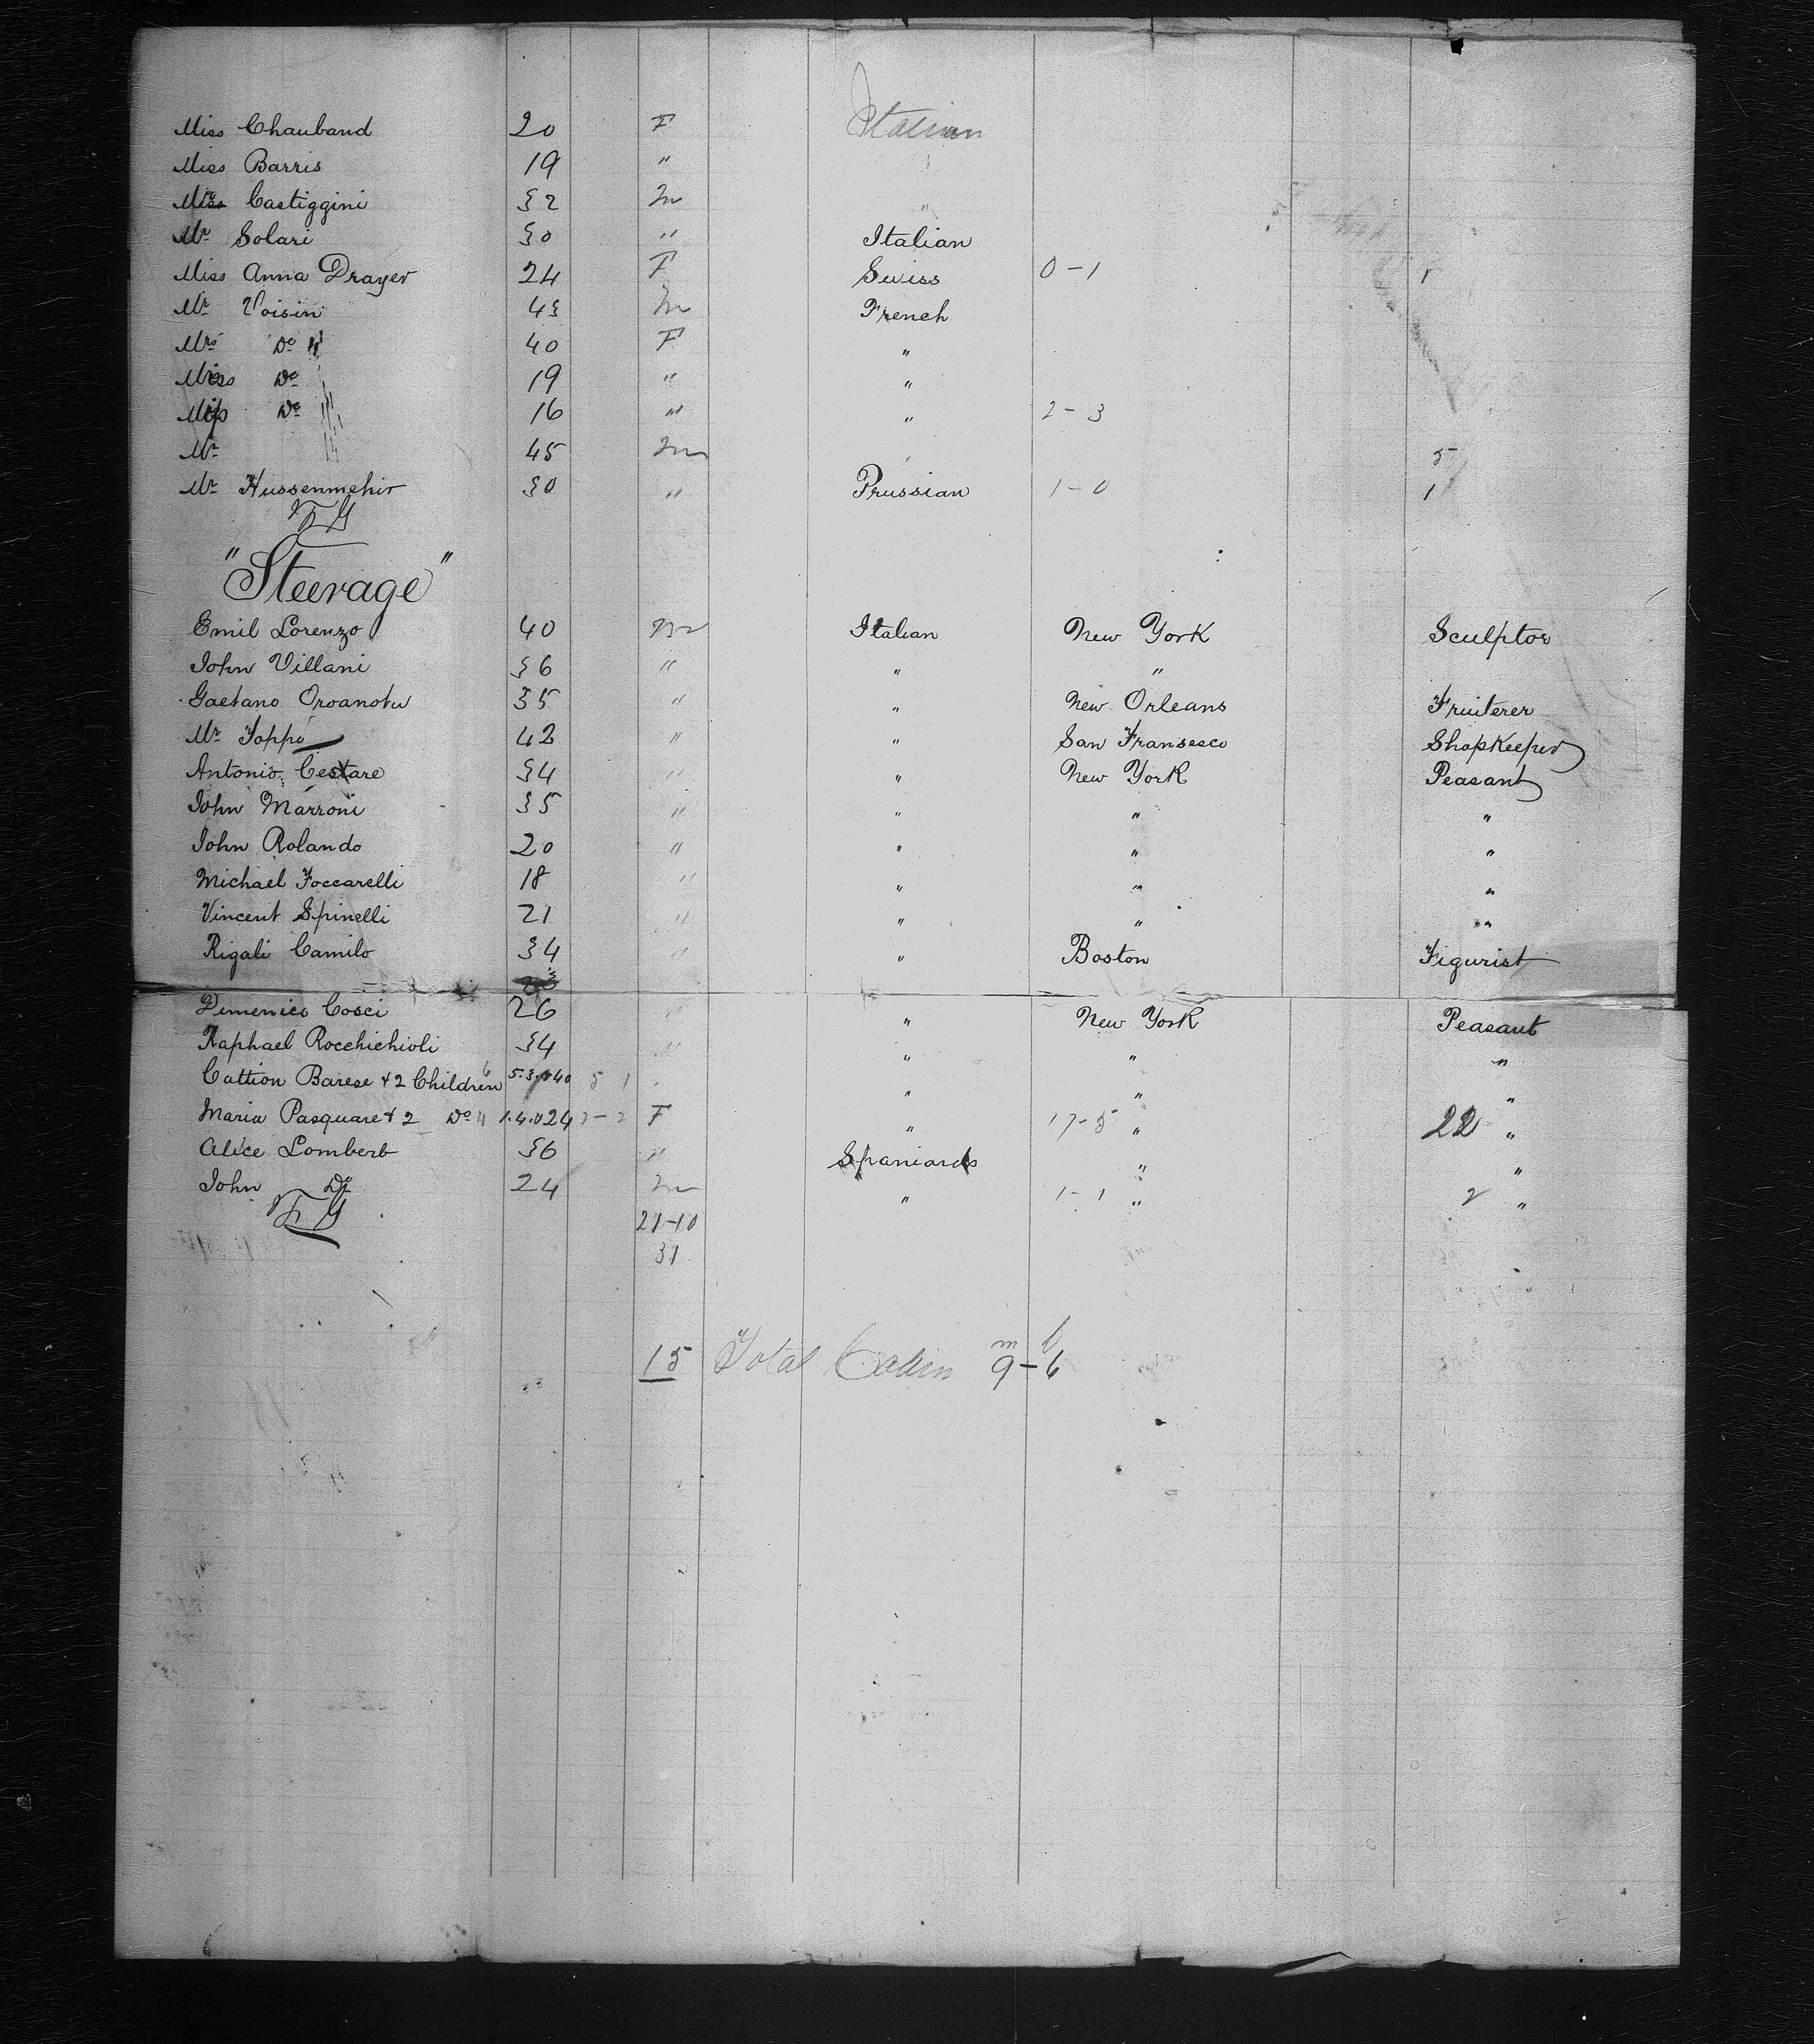 Miss Chauband 20 F Italian
Miss Barris 19 "
Mr Castiggini 32 m "
Mr Solari 30 " Italian
Miss Anna Drayer 24 F Swiss 0-1 1
Mr Voisin 43 m French
Mrs Do 40 F "
Miss Do 19 " "
Miss Do 16 " " 2-3
Mr 45 m " 5
Mr Hussenmehir 30 " Prussian 1-0 1
"Steerage"
Emil Lorenzo 40 m Italian New York Sculptor
John Villani 36 " " "
Gaetano Oroanotu 35 " " New Orleans Fruiterer
Mr Foppo 42 " " San Fransesco Shopkeeper
Antonio Cestare 34 " " New York Peasant
John Marroni 35 " " " "
John Rolando 20 " " " "
Michael Foccarelli 18 " " " "
Vincent Spinelli 21 " " " "
Rigali Camilo 34 " " Boston Figurist
Dimenico Cosci 26 " " New York Peasant
Raphael Rocchichioli 34 " " " "
Cattion Barese & 2 Children 5.3.40 5 1 " " "
Maria Pasquare & 2 Do 1.4.24 2-2 F " 17-5 " 22 "
Alice Lombert 36 " Spaniards " "
John Do 24 m " 1-1 " 2 "
21-10
31
m f
15 Total Cabin 9-6